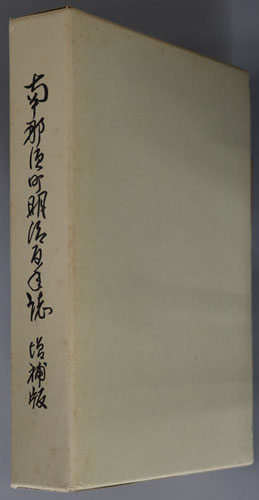 南那須町明治百年誌 増補版